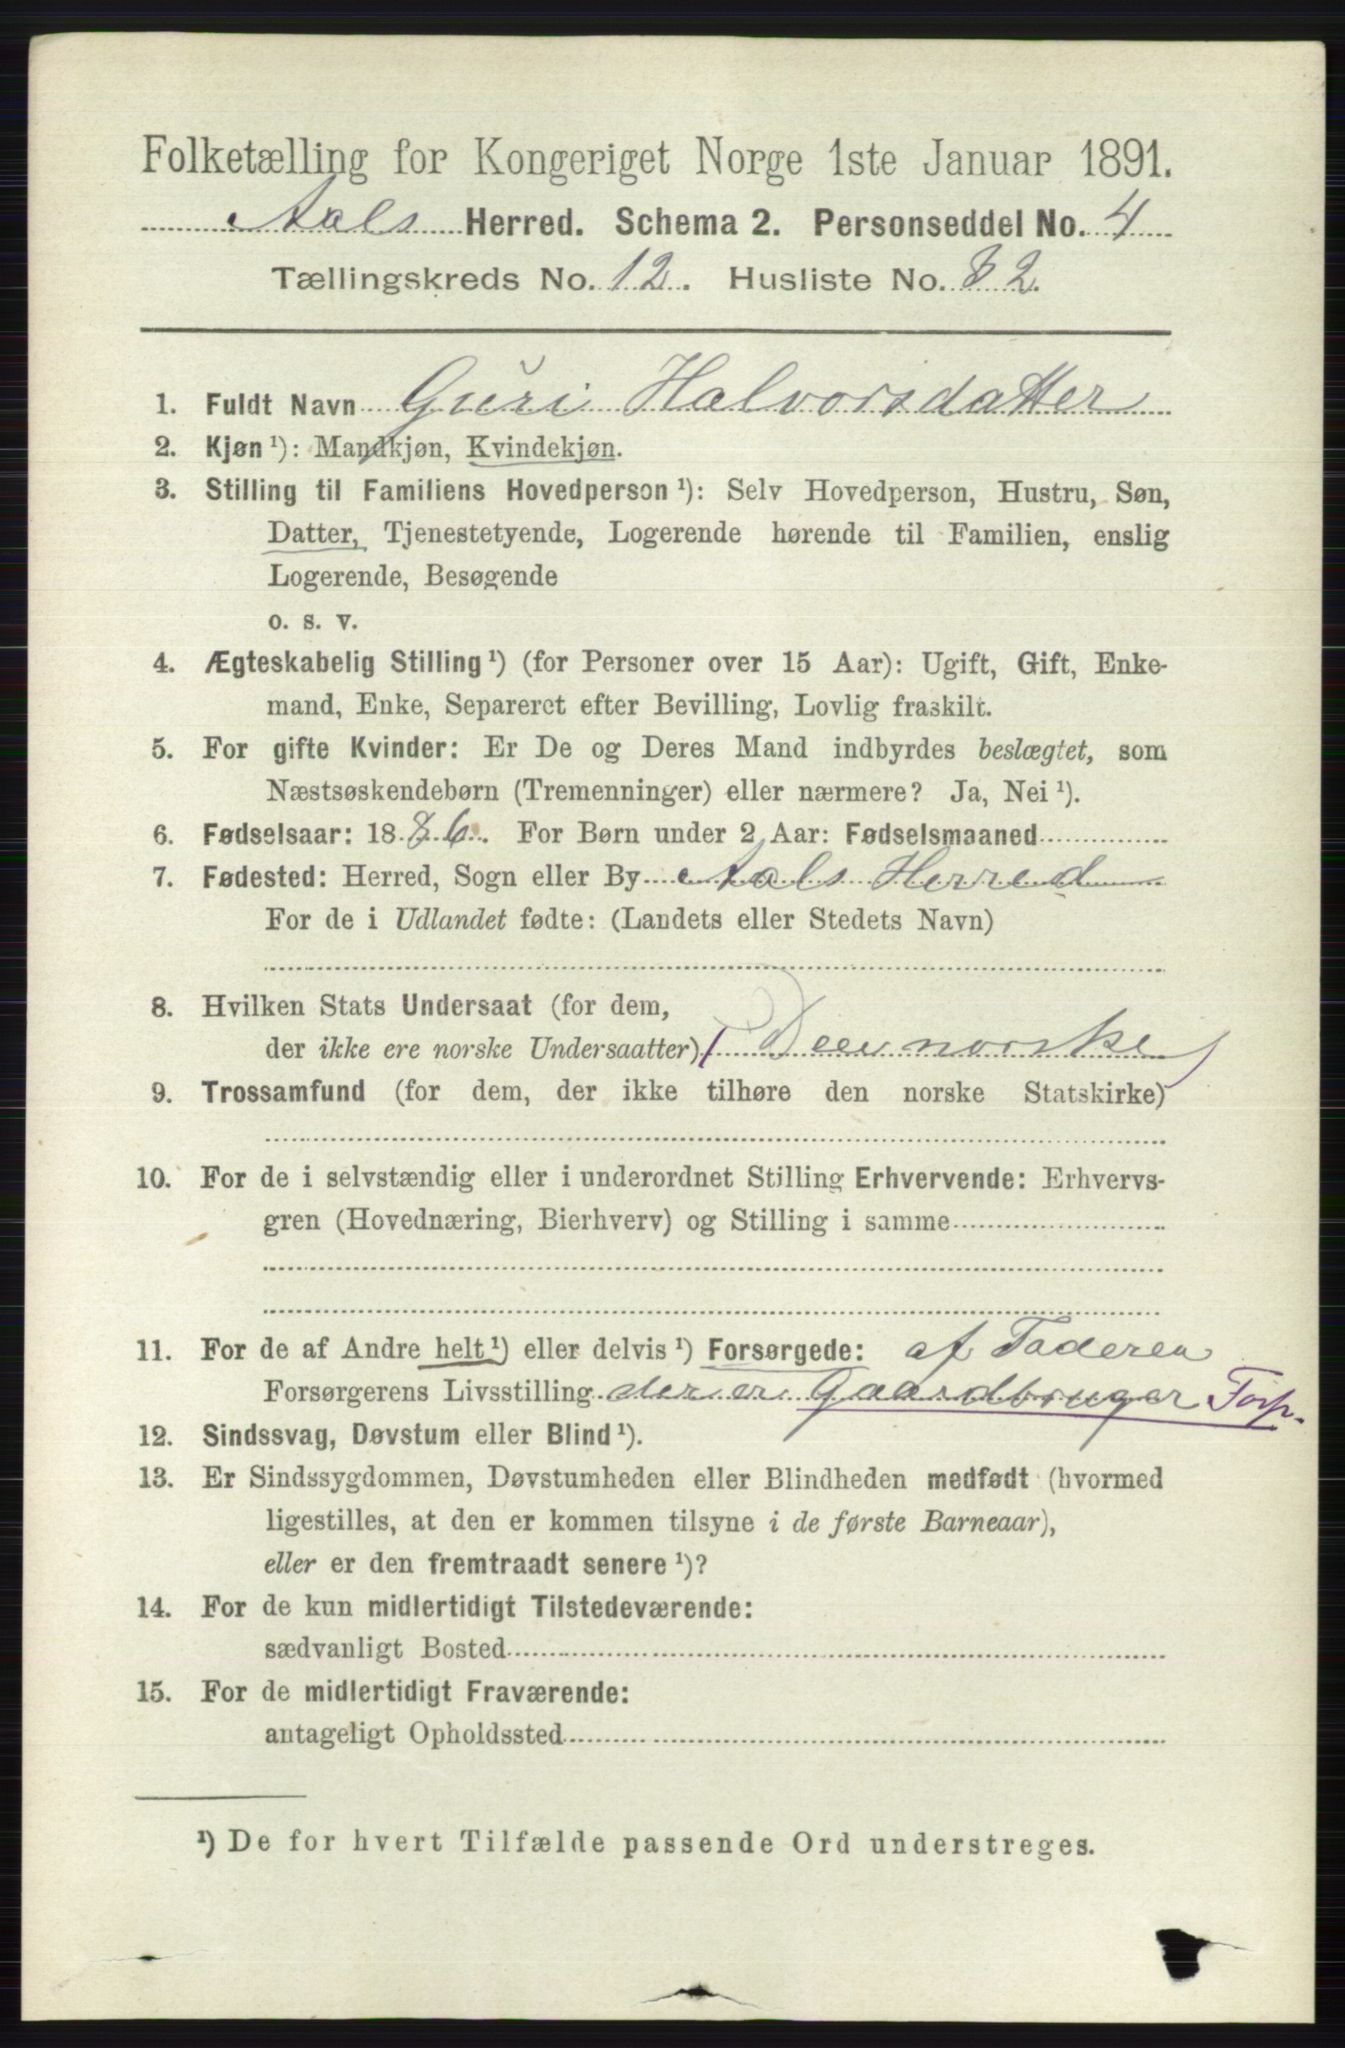 Folketælling for Kongeriget Norge 1ste Januar 1891.
Aals Herred. Schema 2. Personseddel No. 4
Tællingskreds No. 12. Husliste No. 32.
1. Fuldt Navn Guri Halvorsdatter
2. Kjøn ¹): Mandkjøn, Kvindekjøn.
3. Stilling til Familiens Hovedperson ¹): Selv Hovedperson, Hustru, Søn,
Datter, Tjenestetyende, Logerende hørende til Familien, enslig
Logerende, Besøgende
o. s. v.
4. Ægteskabelig Stilling ¹) (for Personer over 15 Aar): Ugift, Gift, Enke-
mand, Enke, Separeret efter Bevilling, Lovlig fraskilt.
5. For gifte Kvinder: Er De og Deres Mand indbyrdes beslægtet, som
Næstsøskendebørn (Tremenninger) eller nærmere? Ja, Nei ¹).
6. Fødselsaar: 1886. For Børn under 2 Aar: Fødselsmaaned
7. Fødested: Herred, Sogn eller By Aals Herred
For de i Udlandet fødte: (Landets eller Stedets Navn)
8. Hvilken Stats Undersaat (for dem,
der ikke ere norske Undersaatter) (Den norske)
9. Trossamfund (for dem, der ikke tilhøre den norske Statskirke)
10. For de i selvstændig eller i underordnet Stilling Erhvervende: Erhvervs-
gren (Hovednæring, Bierhverv) og Stilling i samme
11. For de af Andre helt ¹) eller delvis ¹) Forsørgede: af Faderen
Forsørgerens Livsstilling der er Gaardbruger Forp.
12. Sindssvag, Døvstum eller Blind ¹).
13. Er Sindssygdommen, Døvstumheden eller Blindheden medfødt (hvormed
ligestilles, at den er kommen tilsyne i de første Barneaar),
eller er den fremtraadt senere ¹)?
14. For de kun midlertidigt Tilstedeværende:
sædvanligt Bosted
15. For de midlertidigt Fraværende:
antageligt Opholdssted
¹) De for hvert Tilfælde passende Ord understreges.